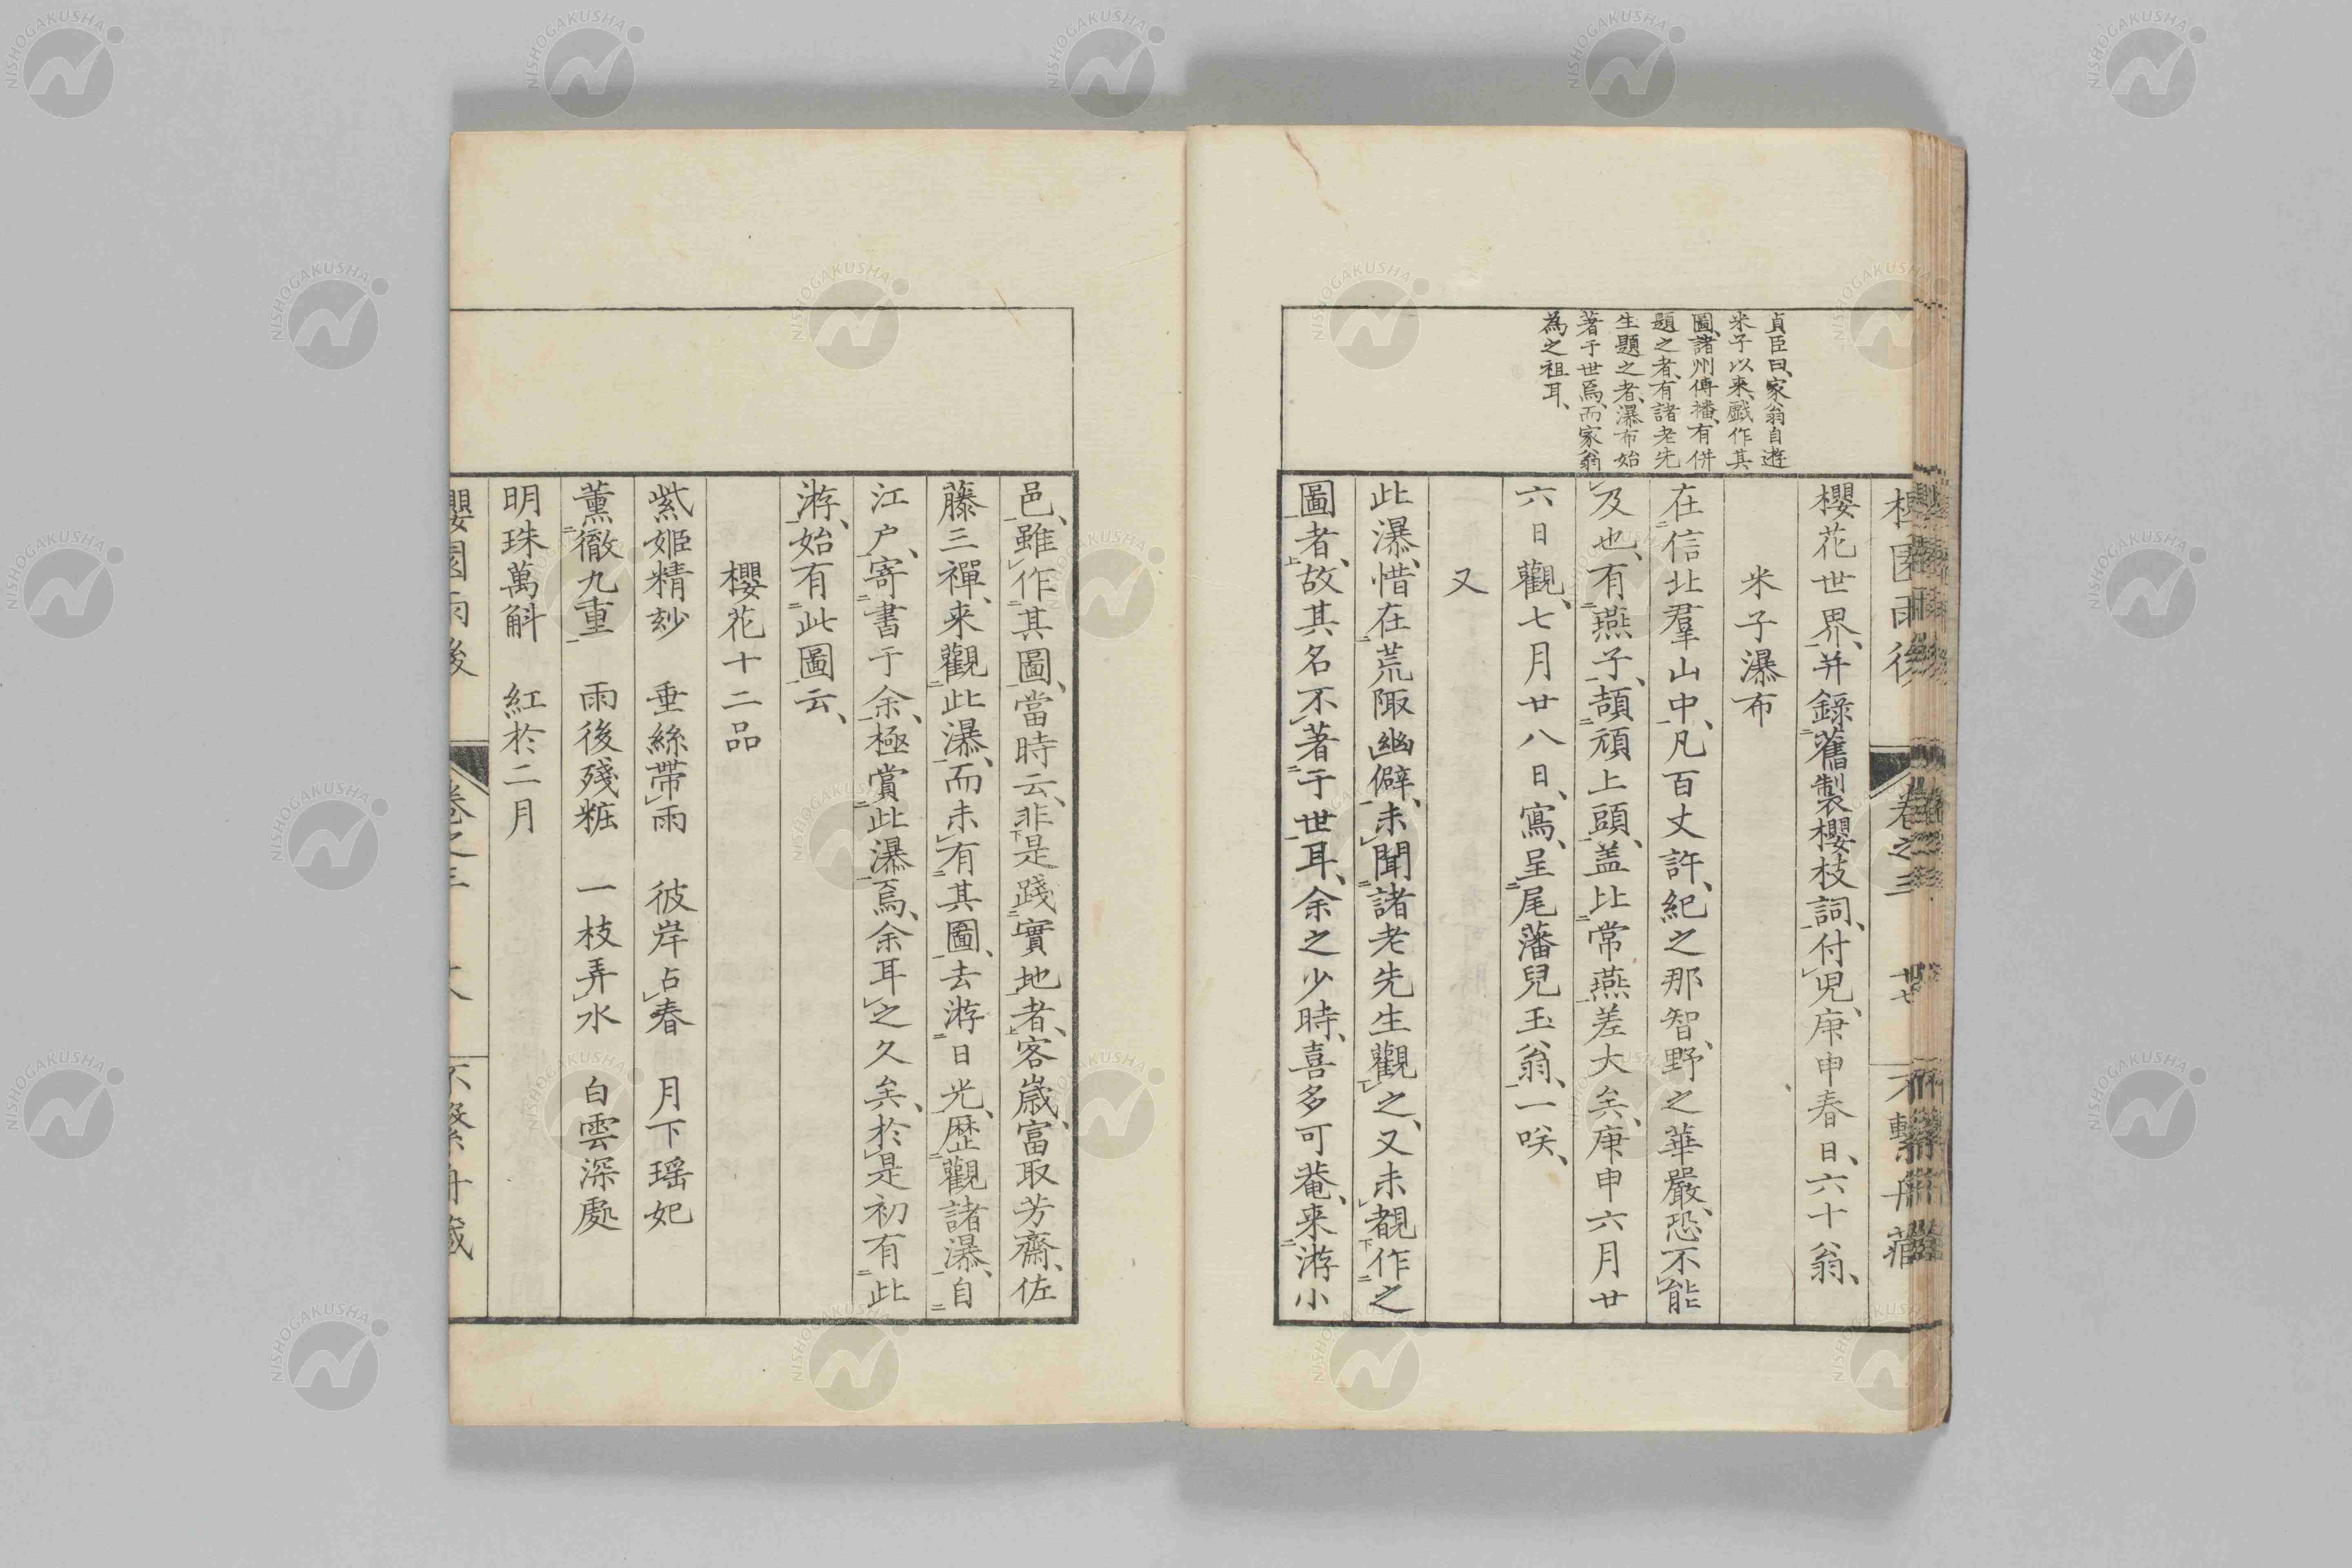 貞臣曰、家翁自遊
米子以來、戲作其
圖、諸州傳播、有併
題之者、有諸老先
生題之者、瀑布始
著于世焉、而家翁
為之祖耳、
櫻園雨後 卷之三 不繫舟藏
櫻花世界、并錄舊製櫻枝詞、付児、庚申春日、六十翁、
米子瀑布
在信北羣山中、凡百丈許、紀之那智、野之華嚴、恐不能
及也、有燕子、頡頏上頭、盖比常燕差大矣、庚申六月廿
六日觀、七月廿八日、寫、呈尾藩兒玉翁、一咲、
又
此瀑、惜在荒陬幽僻、未聞諸老先生觀之、又未覩作之
圖者、故其名不著于世耳、余之少時、喜多可菴、来游小
邑、雖作其圖、當時云、非是踐實地者、客歳、富取芳齋、佐
藤三禪、来觀此瀑、而未有其圖、去游日光、歴觀諸瀑、自
江户、寄書于余、極賞此瀑焉、余耳之久矣、於是初有此
游、始有此圖云、
櫻花十二品
紫姬精妙 垂絲帶雨 彼岸占春 月下瑶妃
薰徹九重 雨後殘粧 一枝弄水 白雲深處
明珠萬斛 紅於二月
櫻園雨後 卷之三 不繫舟藏
NISHOGAKUSHA